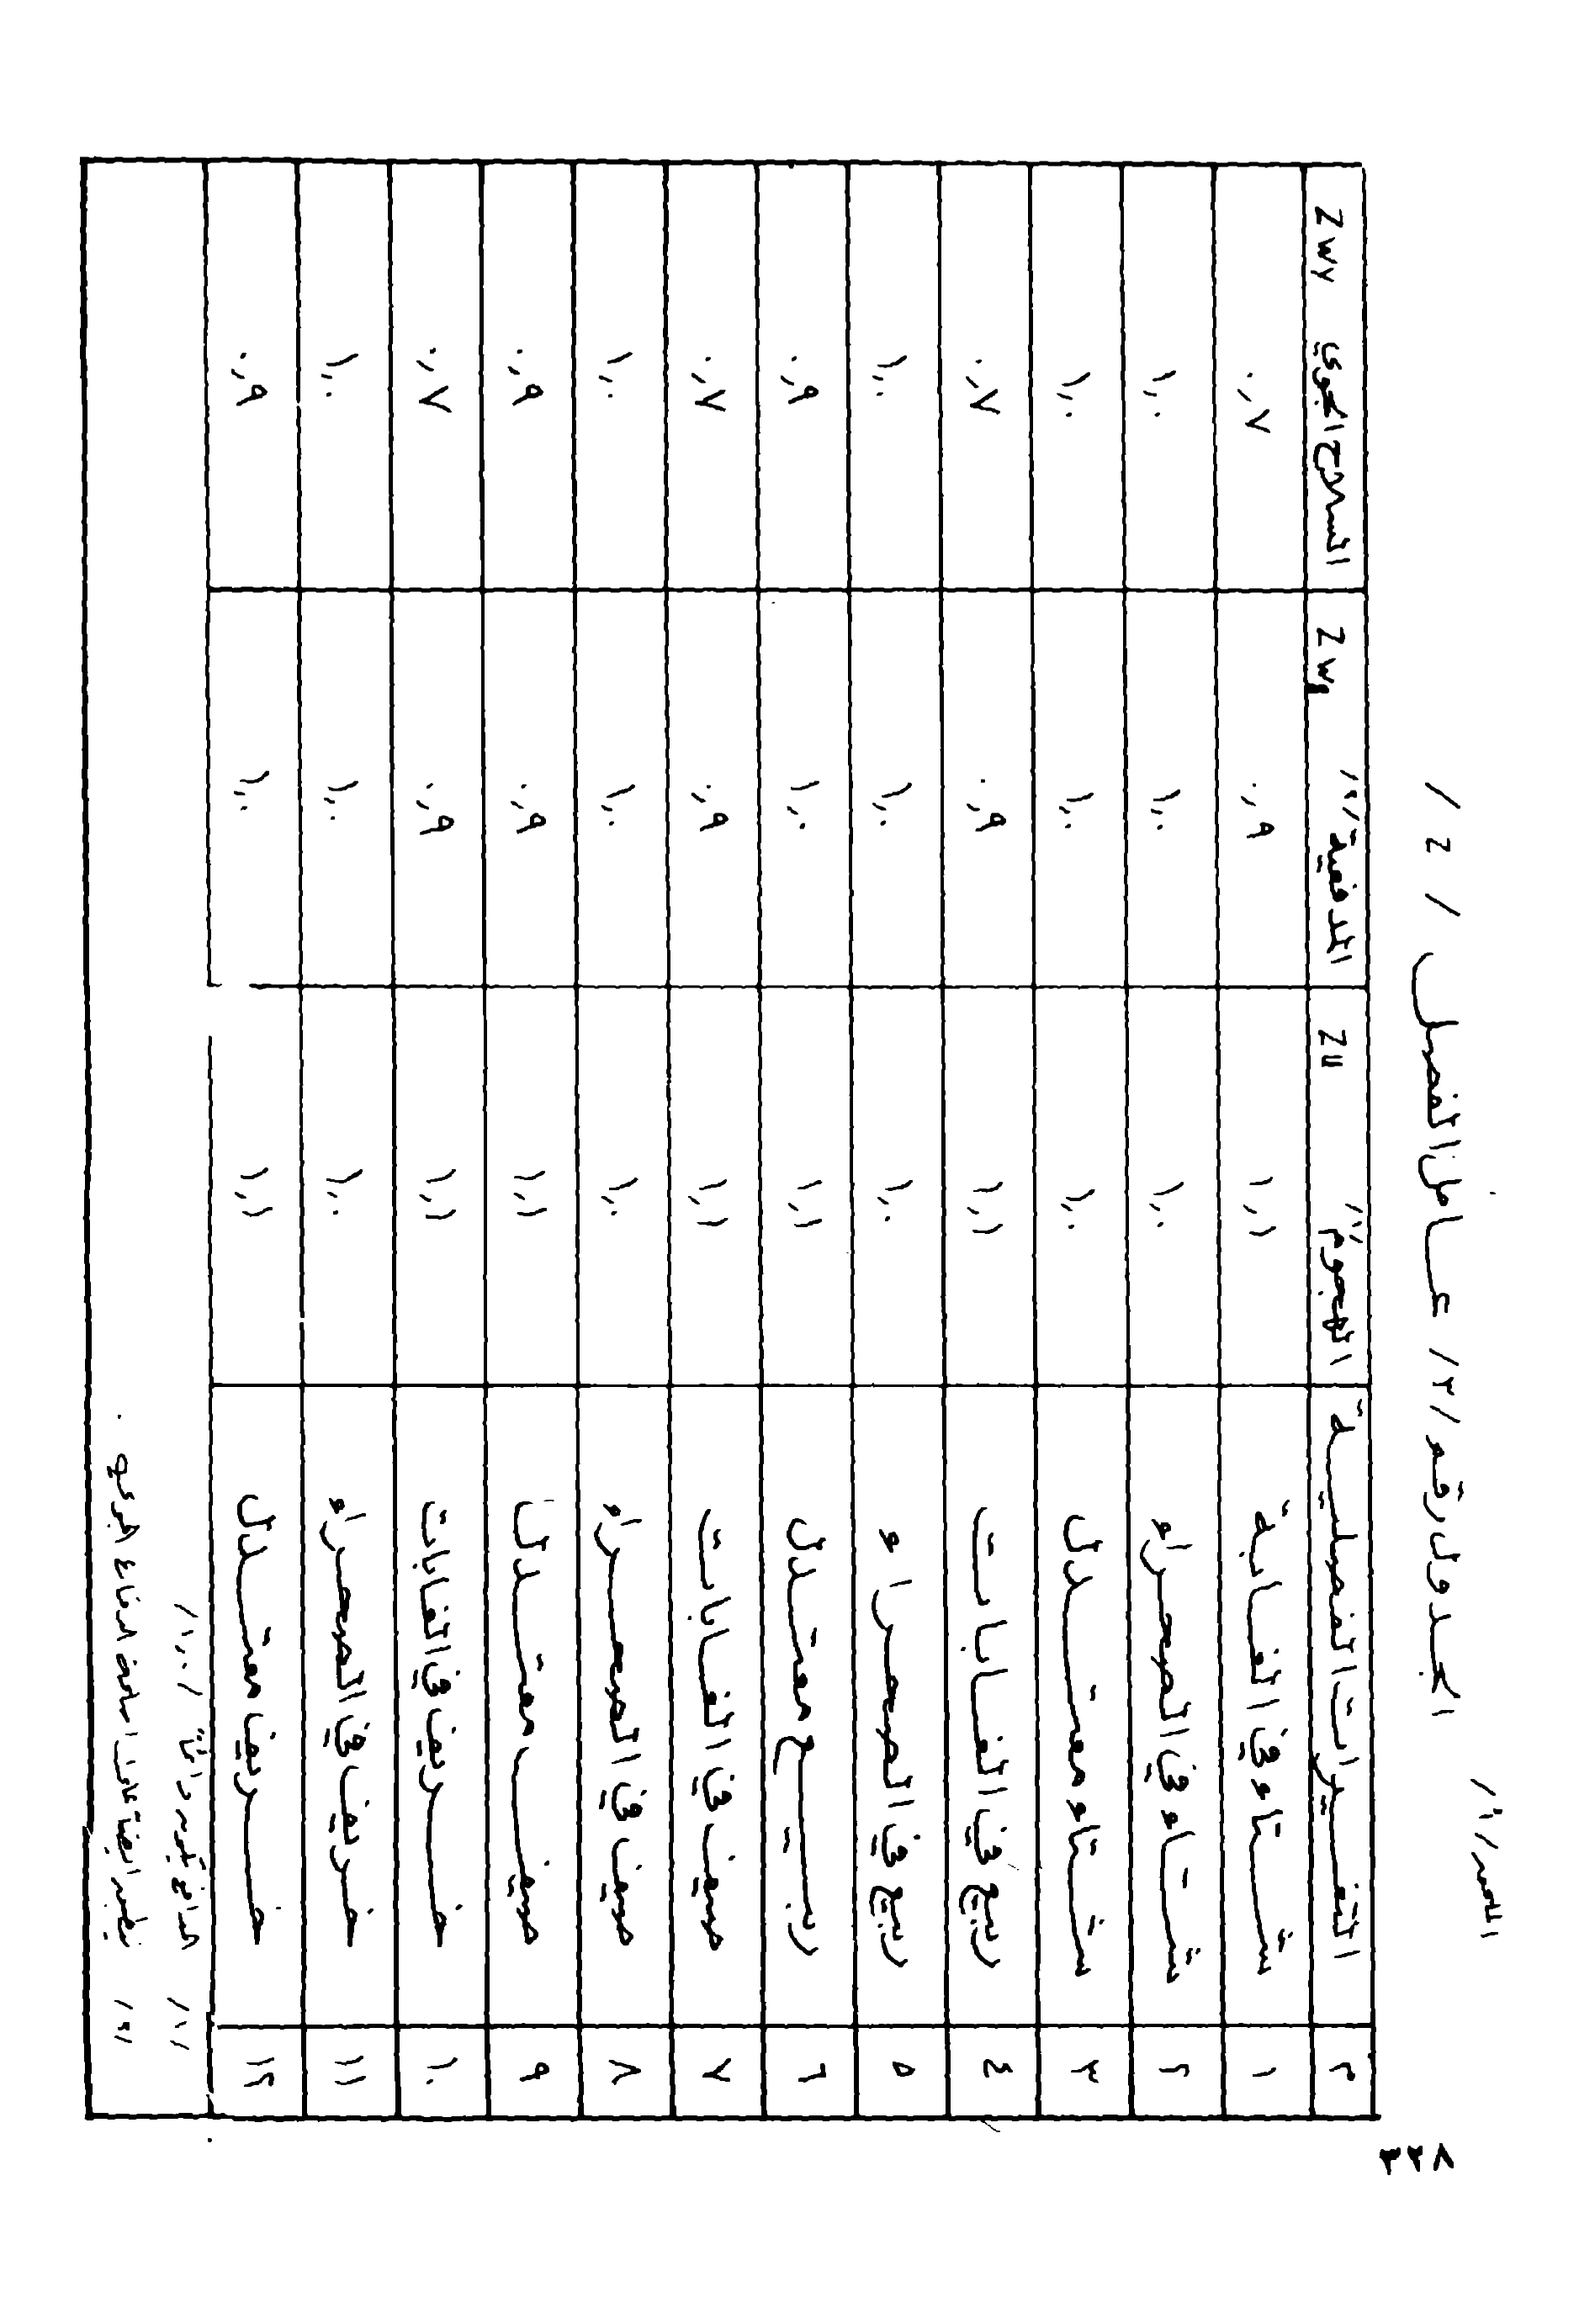 المحور /أ/
الجدول رقم /٣/ عامل الفصل / Z /
م التغيرات الفصلية الهجوم "١" Zu المدفعية "٢" Zwg السلاح الجوي Zwy
١ شتاء في الغابة ١,١ ٠,٩ ٠,٧
٢ شتاء في الصحراء ١,٠ ١,٠ ١,٠
٣ شتاء معتدل ١,٠ ١,٠ ١,٠
٤ ربيع في الغابات ١,١ ٠,٩ ٠,٧
٥ ربيع في الصحراء ١,٠ ١,٠ ١,٠
٦ ربيع معتدل ١,١ ١,٠ ٠,٩
٧ صيف في الغابات ١,١ ٠,٩ ٠,٧
٨ صيف في الصحراء ١,٠ ١,٠ ١,٠
٩ صيف معتدل ١,١ ٠,٩ ٠,٩
١٠ خريف في الغابات ١,١ ٠,٩ ٠,٧
١١ خريف في الصحراء ١,٠ ١,٠ ١,٠
١٢ خريف معتدل ١,١ ١,٠ ٠,٩
/١/ المدافع تكون دائماً /١,٠/
/٢/ يطبق أيضاً على أسلحة الدفاع الجوي .
٣٢٨